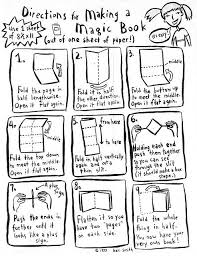 Directions for Making a
Magic Book
(out of one sheet of paper!)
Use 1 sheet
of 8½x11
1.
Fold the page in
half lengthwise.
Open it flat again.
2.
Fold it in half
the other direction.
Open it flat again.
3.
Fold the bottom up
to meet the middle.
Open it flat again.
4.
Fold the top down
to meet the middle.
Open it flat again.
5.
from here
to here
Fold in half vertically
again and only
6.
Holding each end
push them together
so you can see
through the slit
7.
a plus
sign
Push the ends in
farther until it
looks like a plus
sign.
8.
Flatten it so you
have two "pages"
on each side.
9.
Fold the whole
thing in half.
You now have your
very own book!